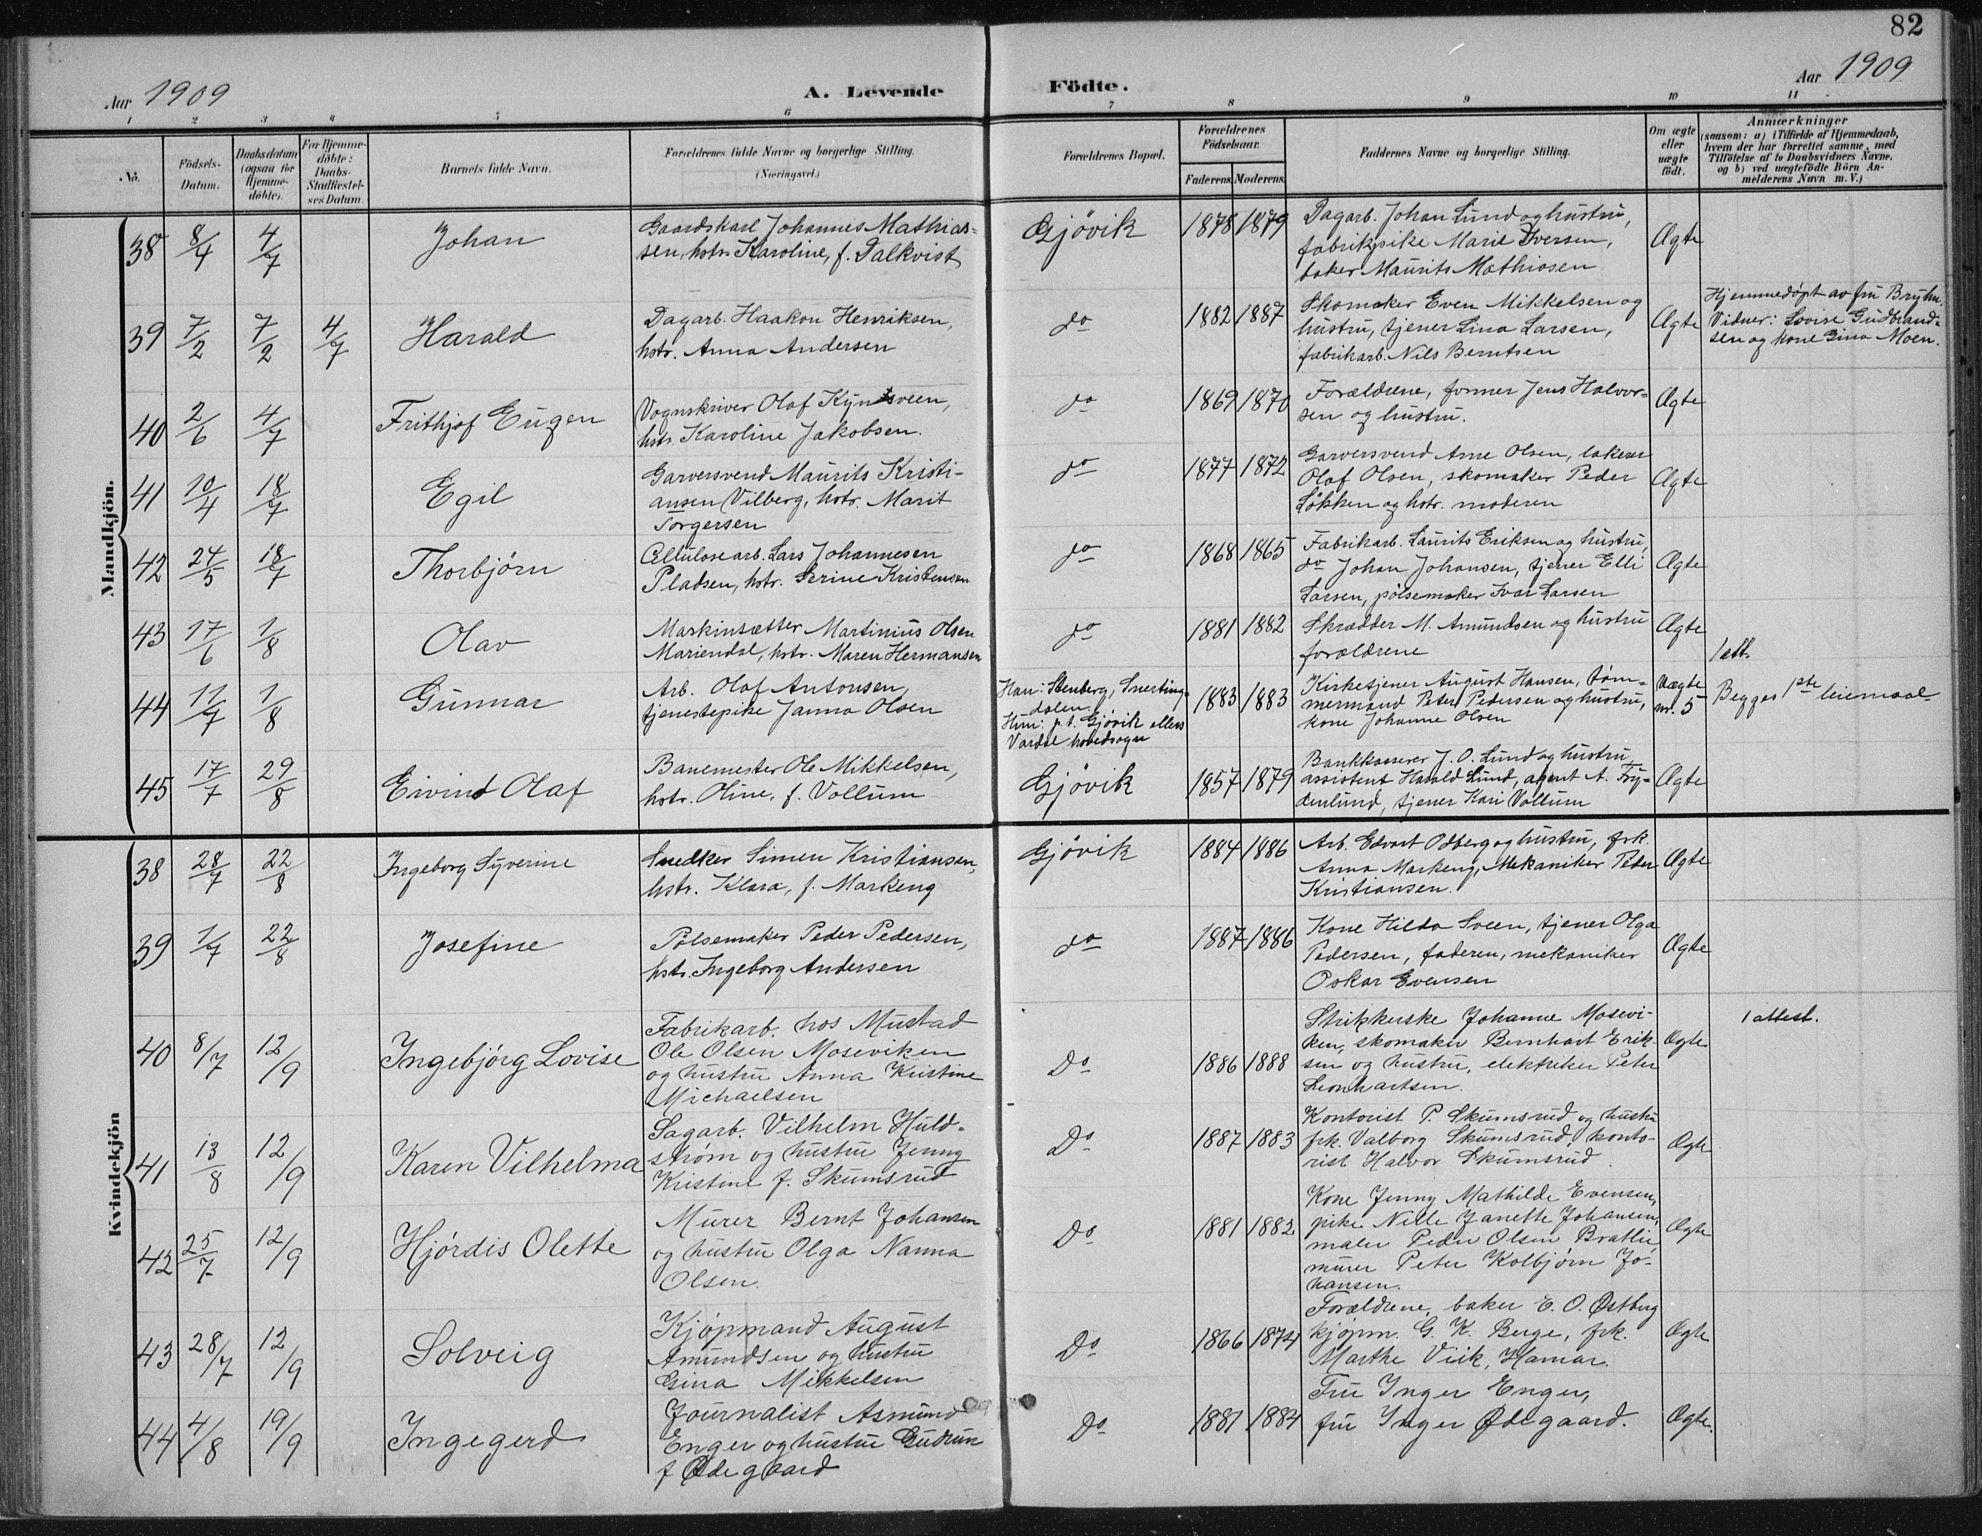 82
Aar 1909
A. Levende Födte.
Aar 1909
1 2 3 4 5 6 7 8 9 10 11
No.
Födsels-
Datum.
Daabsdatum
(ogsaa for
Hjemme-
döbte).
For Hjemme-
döbte:
Daabs-
Stadfæstel-
ses Datum.
Barnets fulde Navn.
Forældrenes fulde Navne og borgerlige Stilling.
(Næringsvei.)
Forældrenes Bopæl.
Forældrenes
Födselsaar.
Faderens. Moderens.
Faddernes Navne og borgerlige Stilling.
Om ægte
eller
uægte
födt.
Anmærkninger
(saasom: a) i Tilfælde af Hjemmedaab,
hvem der har forrettet samme, med
Tilföielse af to Daabsvidners Navne,
og b) ved uægtefödte Börn An-
melderens Navn m. V.)
Mandkjön.
38 8/4 4/7 Johan
Gaardskarl Johannes Mathias-
sen, hstr. Karoline, f. Dalkvist
Gjövik 1878 1879
Dagarb. Johan Lund og hustru,
fabrikpike Marie Iversen,
baker Maurits Mathiasen
Ægte
39 7/2 7/2 4/7 Harald
Dagarb. Haakon Henriksen,
hstr. Anna Andersen
do 1882 1887
Skomaker Even Mikkelsen og
hustru, tjener Lina Larsen,
fabrikarb. Nils Berntsen
Ægte
Hjemmedøpt av fru Bryhn.
Vidner: Lovise Gudbrand-
sen og kone Gina Moen.
40 2/6 4/7 Frithjof Eugen
Vognskriver Olaf Kyndsveen,
hstr. Karoline Jakobsen.
do 1869 1870
Forældrene, former Jens Halvor-
sen og hustru.
Ægte
41 10/4 18/7 Egil
Garversvend Maurits Kristi-
ansen Vilberg, hstr. Marit
Torgersen
do 1877 1872
Garversvend Arne Olsen, lakerer
Olaf Olsen, skomaker Peder
Løkken og hstr. moderen
Ægte
42 24/5 18/7 Thorbjørn
Cellulosearb. Lars Johannesen
Pladsen, hstr. Serine Kristensen
do 1868 1865
Fabrikarb. Laurits Eriksen og hustru,
do Johan Johansen, tjener Elli
Larsen, pølsemaker Ivar Larsen
Ægte
43 17/6 1/8 Olav
Maskinsætter Martinius Olsen
Mariendal, hstr. Maren Hermansen
do 1881 1882
Skrædder M. Amundsen og hustru
forældrene
Ægte
1 att.
44 17/7 1/8 Gunnar
Arb. Olaf Antonsen,
tjenestepike Janna Olsen
Han: Stenberg, Snerting-
dalen.
Hun: p.t. Gjøvik ellers
Vardal hovedsogn
1883 1883
Kirketjener August Hansen, tøm-
mermand Peter Pedersen og hustru,
kone Johanne Olsen
Uægte
nr. 5
Begges 1ste leiemaal
45 17/7 29/8 Eivind Olaf
Banemester Ole Mikkelsen,
hstr. Oline, f. Vollum
Gjövik 1857 1879
Bankkasserer J. O. Lund og hustru,
assistent Harald Lund, agent A. Fry-
denlund, tjener Kari Vollum
Ægte
Kvindekjön
38 28/7 22/8 Ingeborg Syverine
Snedker Simen Kristiansen,
hstr. Klara, f. Markeng
Gjövik 1884 1886
Arb. Edvart Odberg og hustru, frk.
Anna Markeng, Mekaniker Peder
Kristiansen.
Ægte
39 1/7 22/8 Josefine
Pølsemaker Peder Pedersen,
hstr. Ingeborg Andersen
do 1887 1886
Kone Hilda Sveen, tjener Olga
Pedersen, faderen, mekaniker
Oskar Evensen
Ægte
40 8/7 12/9 Ingebjørg Lovise
Fabrikarb. hos Mustad
Ole Olsen Moseviken
og hustru Anna Kristine
Michaelsen
Do 1886 1888
Strikkerske Johanne Mosevi-
ken, skomaker Bernhart Erik-
sen og hustru, elektriker Peter
Leonhartsen.
Ægte
1 attest.
41 13/8 12/9 Karen Vilhelma
Sagarb. Vilhelm Huld-
strøm og hustru Jenny
Kristine f. Skumsrud
Do 1887 1883
Kontorist P. Skumsrud og hustru
frk. Valborg Skumsrud, konto-
rist Halvor Skumsrud.
Ægte
42 25/7 12/9 Hjørdis Olette
Murer Bernt Johansen
og hustru Olga Nanna
Olsen.
Do 1881 1882
Kone Jenny Mathilde Evensen,
pike Nille Janette Johansen,
maler Peder Olsen Bratlie,
murer Peter Kolbjørn Jo-
hansen.
Ægte
43 28/7 12/9 Solveig
Kjøpmand August
Amundsen og hustru
Gina Mikkelsen
Do 1866 1874
Forældrene, baker E. O. Østberg
kjøpm. G. K. Berge, frk.
Marthe Viik, Hamar.
Ægte
44 4/8 19/9 Ingegerd
Journalist Asmund
Enger og hustru Gudrun
f Ødegaard
Do 1881 1884
Fru Inger Enger,
fru Inger Ødegaard.
Ægte.